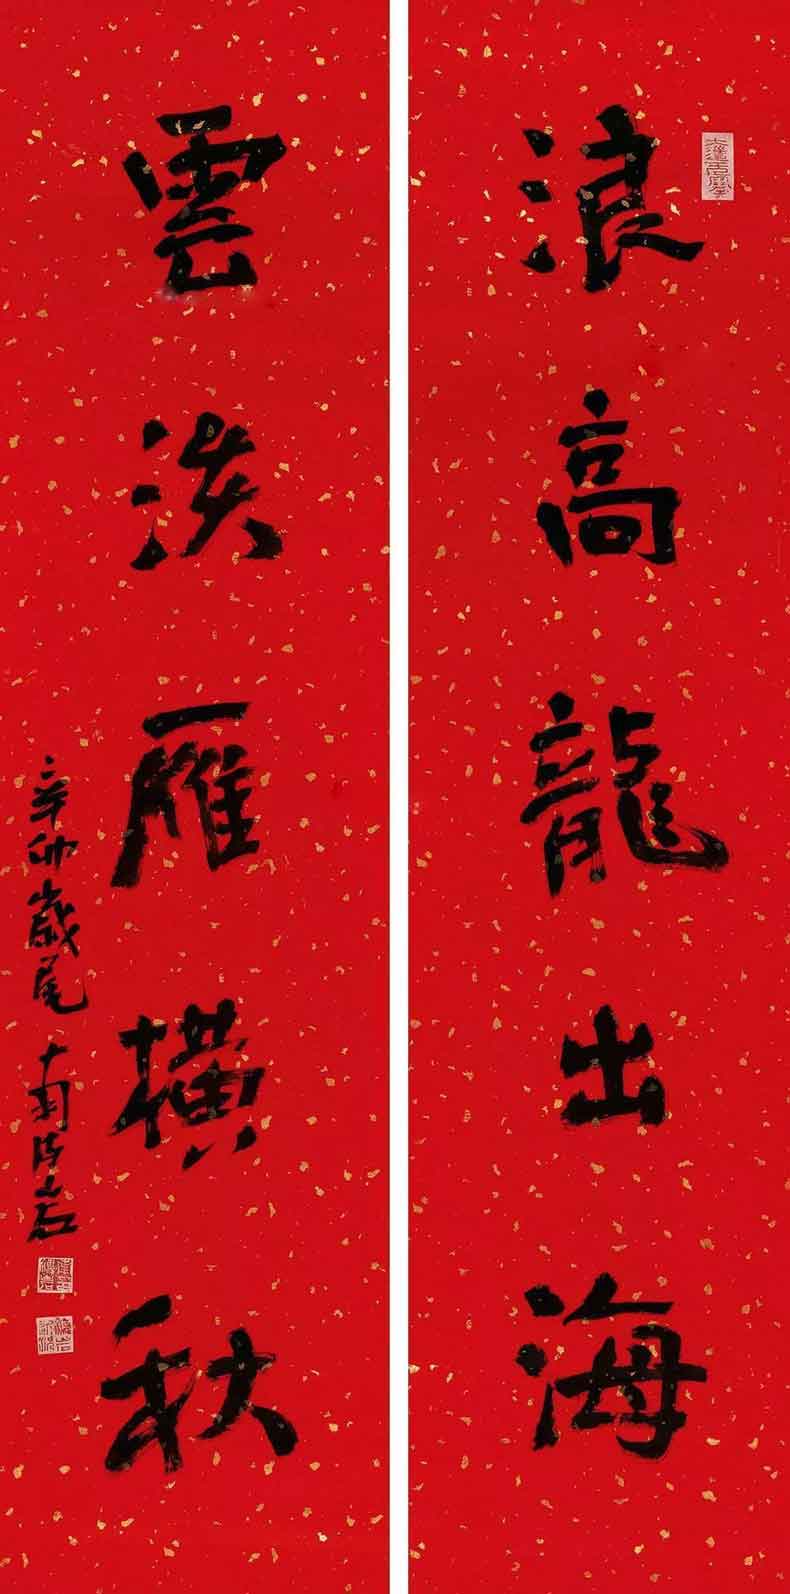 浪高龍出海
雲淡雁橫秋
辛卯歲尾